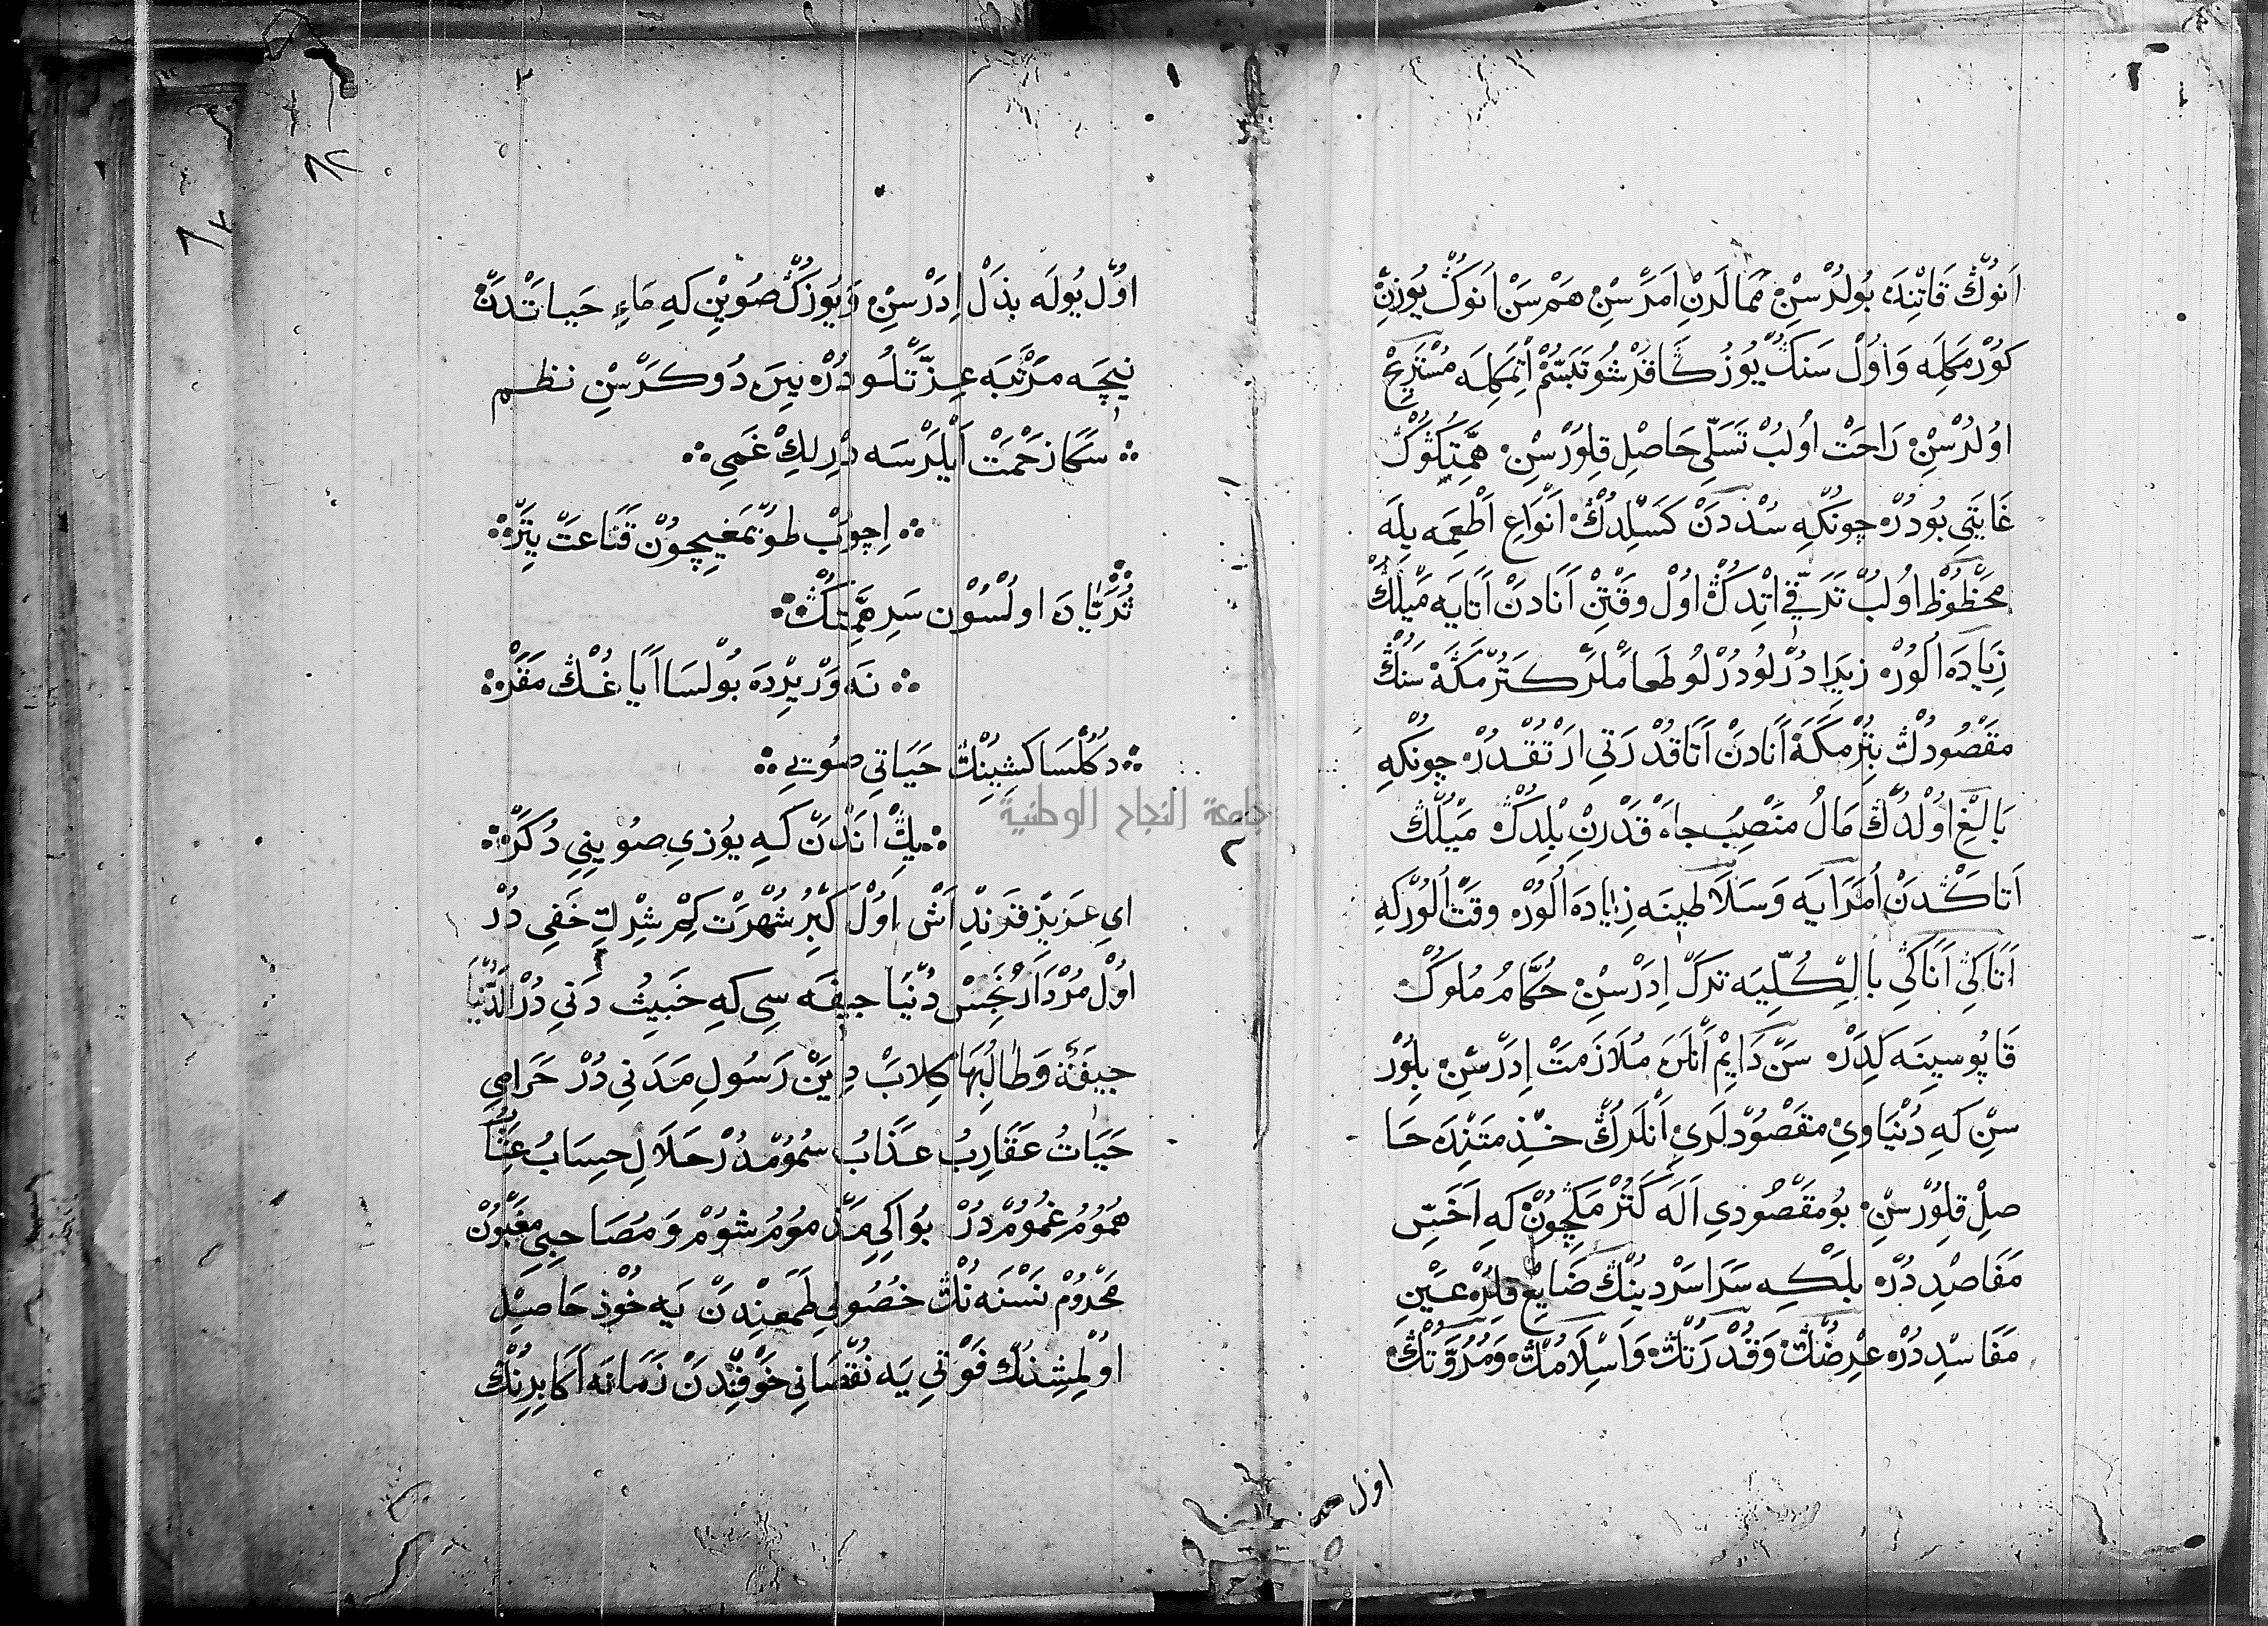 اَنوُڭ قَاتْنِدَه بُولُرْسِنْ مَمالَرنِ اَمَرْسِنْ هَمْ سَنْ اَنوُكْ يُوزِنْ
كوُرْمَكِلَه وَ اوُلْ سَنِكْ يوُزُكَا قَرْشُو تَبَسُّمْ اِتْمَكِلَه مُسْتَرِيحْ
اوُلُرْسِنْ رَاحَتْ اوُلُبْ تَسَلِّي حَاصِلْ قِلوُرْسِنْ هِمَّتِكُوُكْ
غَايَتِي بُودُرْ چونْكِه سُدْدَنْ كَسِلْدِكْ اَنْوَاعِ اَطْعِمَه يِلَه
مَحْظُوظْ اوُلُبْ تَرَقِّي اتِدِكْ اوُلْ وَقْتِنْ اَنَادَنْ اَتَايَه مَيْلِكْ
زِيَادَه اُلوُرْ زيرَا دُرْلُو دُرْلُو طَعَاملَرْ كَتُرْمَكَه سَنُكْ
مَقْصُودُكْ بِتُرْمَكَه اَنَادَنْ اَتَا قُدْرَتِي اَرْتُقْدُرْ چونْكِه
بَالِغْ اوُلْدُكْ مَالُ مَنْصِبُ جاه قَدْرِنْ بِلْدِكْ مَيْلُكْ
اَتَاكْدَنْ اُمَرَايَه وَ سَلَاطينَه زِيَادَه اُلوُرْ وقتْ اُلوُرْكه
اَتَاكِي اَنَاكِي بِالْكُلِّيَه تركْ اِدَرْسِنْ حُكَّامُ مُلوُكْ
قَاپُوسينَه كَلِدَرْ سَنْ دَايِمْ اَنْلَرَ مُلَازَمَتْ اِدَرْسِنْ بِلوُرْ
سِنْ كِه دُنْيَاوِيْ مَقْصُودْلَرِي اَنْلَرُكْ خِذْمَتِنْدَه حَا
صِلْ قِلوُرْسِنْ بُو مَقْصُودِي اَلَه كَتُرْمَكچُونْ كِه اَخَسِّ
مَقَاصِدْدُرْ بلكه سَرَاسَرْ دينُكْ ضَايِعْ قِلِرْ عَيْنِ
مَفَاسِدْدُرْ عِرْضُكْ وَ قُدْرَتُكْ وَ اِسْلَامُكْ وَ مُرُوَّتُكْ
اوُل
اوُلْ بُولَه بذلْ اِدَرْسِنْ وَ يُوزُكْ صُويِنْ كِه مَاءِ حَيَاتْدَنْ
نيچَه مَرْتَبَه عِزَّتْلُودُرْ يِيرَه دُوكَرْسِنْ نظم
سَكَا زَحْمَتْ اَيْلَرْسَه دِرْلِكْ غَمِي
اِچوُبْ طوُيْمَغيچوُنْ قَنَاعَتْ يِتَرْ
ثُرَيَّادَه اولْسُوْنْ سَرِ هِمَّتِكْ
نَه وَرْ يِرْدَه بُولْسَا اَيَاغُكْ مَقَرْ
دُكُلْسَا كِشِينِكْ حَيَاتِي صُويِي
يِكْ اَنْدَنْ كِه يوُزي صُويِنِي دُكَرْ
اي عَزيزْ فَرَنْدِ اَشْ اوُلْ كِبْرُ شُهْرَتْ كِمْ شِرْكِ خَفِي دُرْ
اوُلْ مُرْدَارْ نَجِسْ دُنْيَا جيفَه سِي كِه خَبِيثُ دَنِي دُرْ الدُّنْيَا
جيفَةٌ وَطَالِبُهَا كِلابٌ ديَنْ رَسُولِ مَدَنِي دُرْ حَرَامِي
حَيَاتُ عَقَارِبُ عَذَابُ سُمُومْدُرْ حَلَالِ حِسَابُ عِتَابُ
هُمُومُ غُمُومْ دُرْ بُو اِكِي مَذْمُومُ شوُمْ وَ مُصَاحِبِي مَغْبُونْ
مَحْرُومْ نَسْنَه نُكْ حُصُولِي طَمَعِنْدَنْ يَه خُوْذ حَاصِلْ
اوُلْمِشِنُكْ فَوْتِي يَه نُقْصَانِي خَوْفِنْدَنْ زَمَانَه اَكَابِرِنُكْ